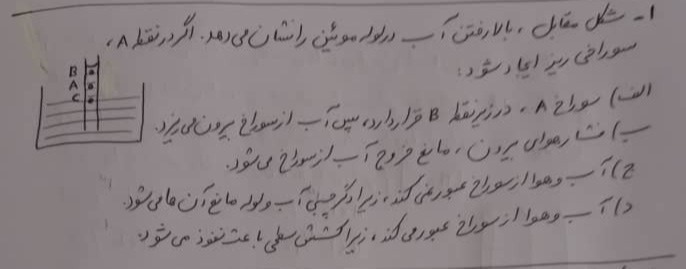 ۱- شکل مقابل، بالا رفتن آب در لوله موئین را نشان می دهد. اگر در نقطه A،
سوراخی ریز ایجاد شود:
B
A
C
الف) سوراخ A، در زیر نقطه B قرار دارد، پس آب از سوراخ بیرون می ریزد.
ب) فشار هوای بیرون، مانع خروج آب از سوراخ می شود.
ج) آب و هوا از سوراخ عبور نمی کند، زیرا دگرچسبی آب و لوله مانع آن ها می شود.
د) آب و هوا از سوراخ عبور می کند، زیرا کشش سطحی باعث نفوذ می شود.